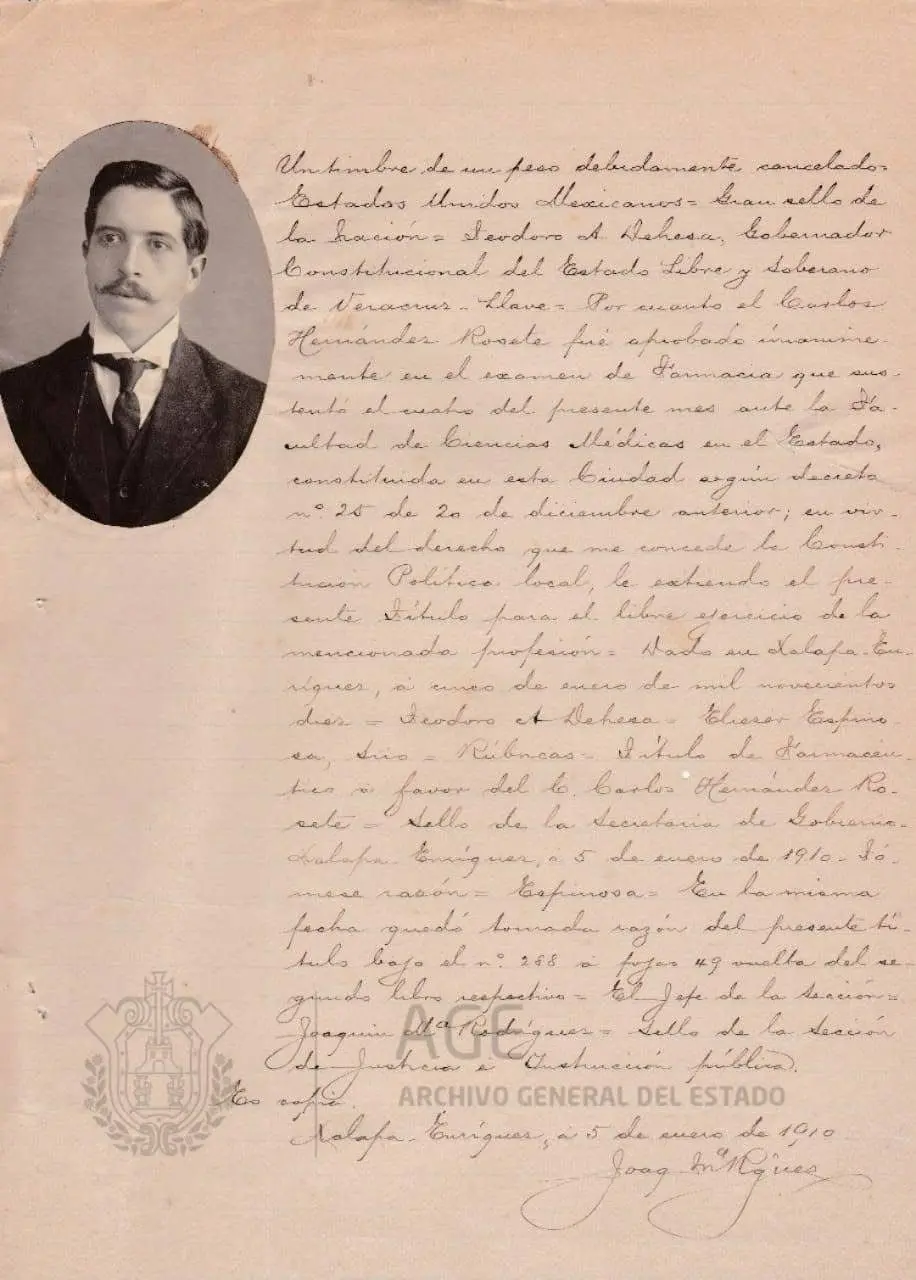 Un timbre de un peso debidamente cancelado=
Estados Unidos Mexicanos= Gran sello de
la Nación= Teodoro A Dehesa, Gobernador
Constitucional del Estado Libre y Soberano
de Veracruz-Llave= Por cuanto el C Carlos
Hernández Rosete fué aprobado únanime-
mente en el examen de Farmacia que sus-
tentó el cuatro del presente mes ante la Fa-
cultad de Ciencias Médicas en el Estado,
constituida en esta Ciudad según decreto
nº. 25 de 20 de diciembre anterior; en vir-
tud del derecho que me concede la Consti-
tución Política local, le extiendo el pre-
sente Título para el libre ejercicio de la
mencionada profesión= Dado en Xalapa-En-
ríquez, á cinco de enero de mil novecientos
diez = Teodoro A Dehesa= Eliezer Espino-
sa, Srio = Rúbricas= Título de Farmacéu-
tico á favor del C. Carlos Hernández Ro-
sete= Sello de la Secretaría de Gobierno-
Xalapa-Enríquez, á 5 de enero de 1910- Tó-
mese razón= Espinosa= En la misma
fecha quedó tomada razón del presente tí-
tulo bajo el nº. 288 á fojas 49 vuelta del se-
gundo libro respectivo= El Jefe de la Sección=
Joaquin Mª Rodríguez= Sello de la Sección
de Justicia é Instrucción pública.
AGE
ARCHIVO GENERAL DEL ESTADO
Es copia.
Xalapa-Enríquez, á 5 de enero de 1910
Joaq. Mª Rgúez